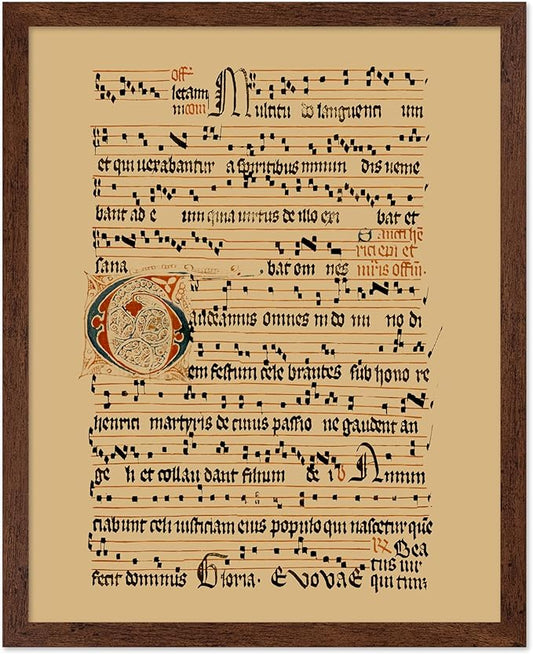 Off.
letami
Multitu do languenti um
et qui uexabantur a spiritibus inmun dis uenie
bant ad e um quia uirtus de illo exi bat et
Sancti hē
rici epi et
sana bat om nes mr̄is offm̄.
Gaudeamus omnes in do mi no di
em festum cele brantes sub hono re
henrici martyris de cuius passio ne gaudent an
ge li et collau dant filium de i Annun
ciabunt celi iusticiam eius populo qui nascetur quē
Bea
tus uir
fecit dominus Gloria. EVOVAE qui